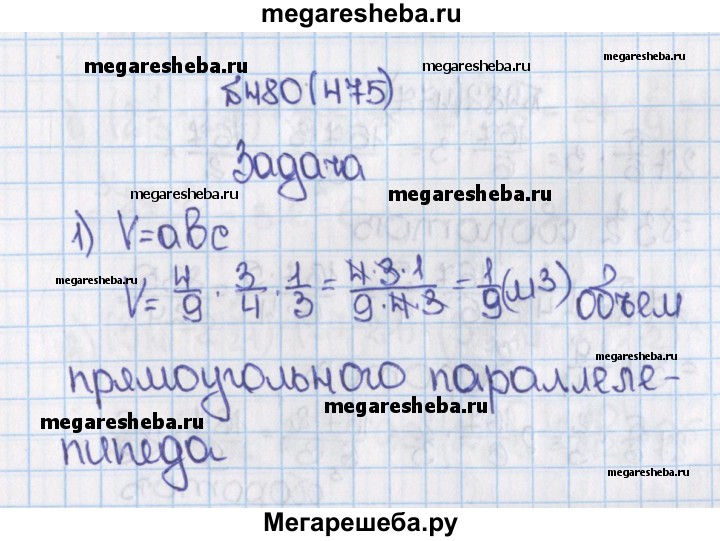 megaresheba.ru
megaresheba.ru megaresheba.ru megaresheba.ru
№480(475)
Задача
megaresheba.ru megaresheba.ru
1) V=abc
megaresheba.ru
V= 4/9 · 3/4 · 1/3 = 4·3·1/9·4·3 = 1/9 (м³) объем
megaresheba.ru
прямоугольного параллеле-
megaresheba.ru megaresheba.ru
пипеда
megaresheba.ru
Мегарешеба.ру